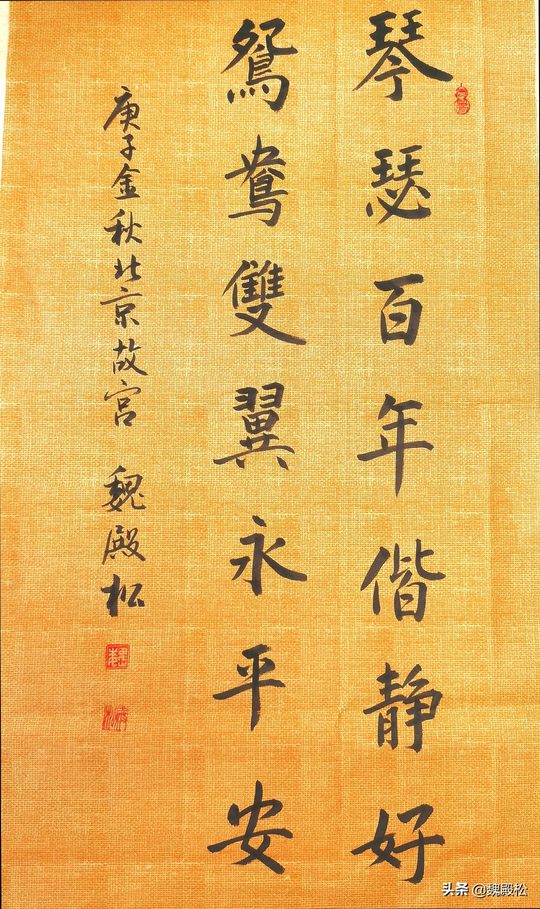 琴瑟百年偕静好
鸳鸯雙翼永平安
庚子金秋北京故宫 魏殿松
头条 @魏殿松